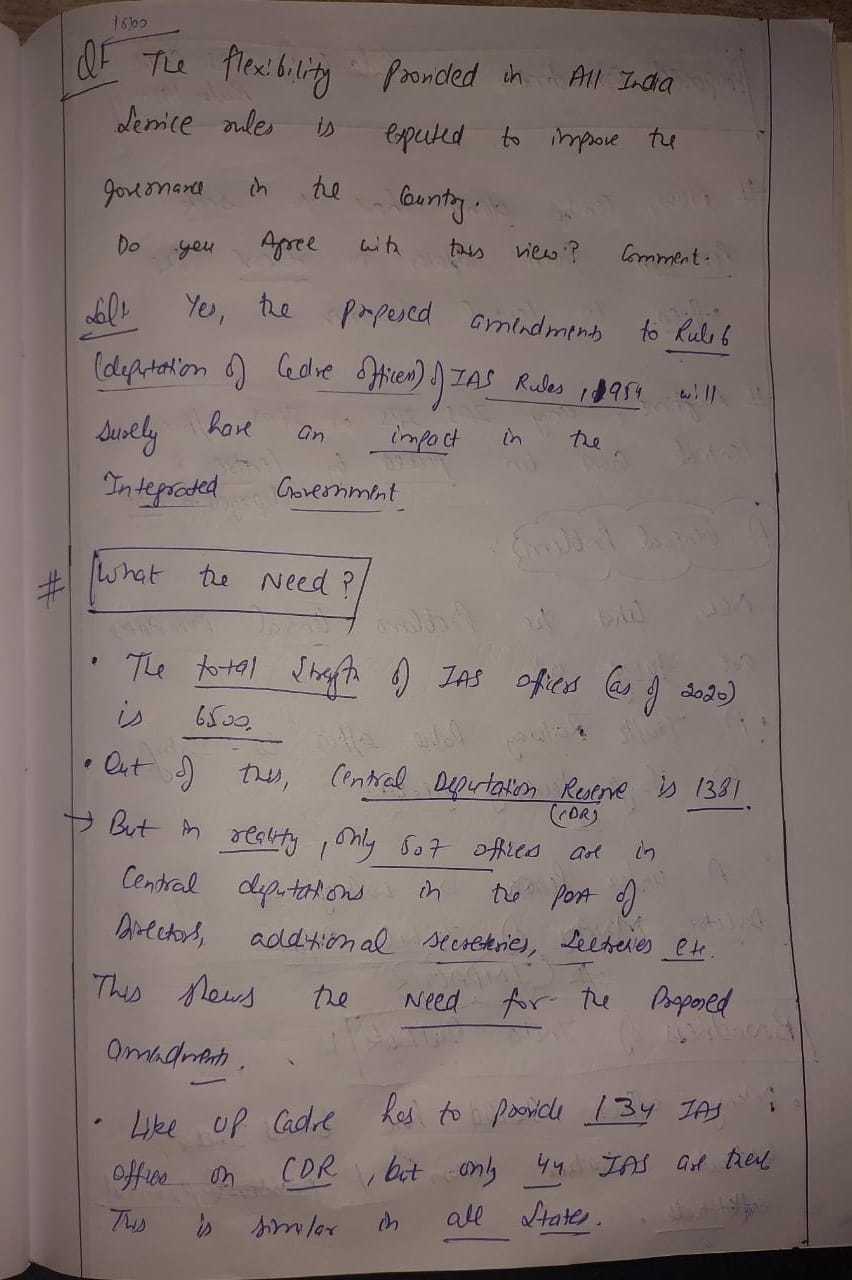 15/00
Q1 The flexibility Provided in All India
Service rules is expected to improve the
governance in the Country.
Do you Agree with this view? Comment.
Sol: Yes, the proposed amendments to Rule 6
(deputation of Cadre Officers) of IAS Rules, 1954 will
surely have an impact in the
Integrated Government
# What the Need?
• The total Strength of IAS officers (as of 2020)
is 6500.
• Out of this, Central Deputation Reserve is 1381.
(CDR)
→ But in reality, only 507 officers are in
Central deputations in the post of
Directors, additional secreteries, Secteries etc.
This shows the Need for the Proposed
amendments.
• Like UP Cadre has to provide 134 IAS
officers on CDR, but only 44 IAS are there
This is similar in all States.